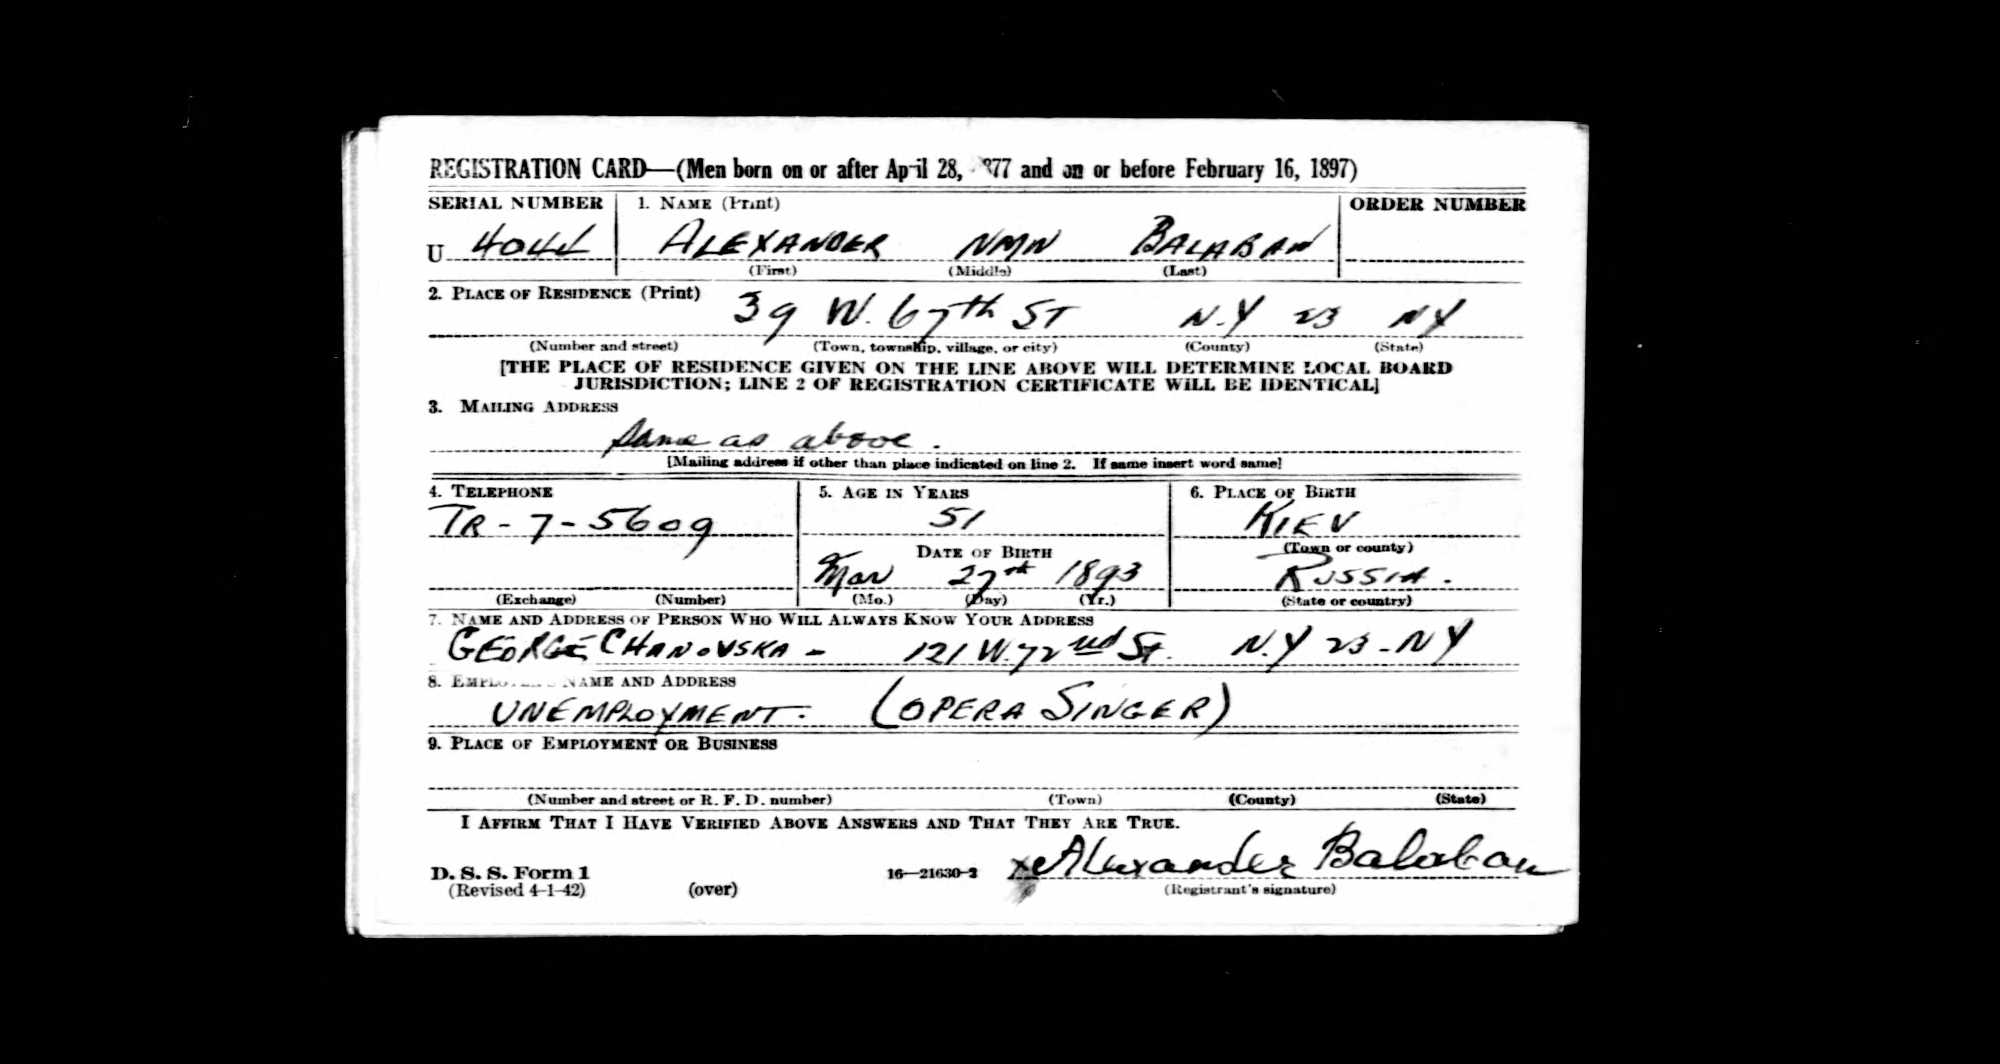 REGISTRATION CARD—(Men born on or after April 28, 1877 and on or before February 16, 1897)
SERIAL NUMBER 1. NAME (Print) ORDER NUMBER
U 4044 ALEXANDER NMN BALABAN
(First) (Middle) (Last)
2. PLACE OF RESIDENCE (Print)
39 W. 67th ST N.Y 23 NY
(Number and street) (Town, township, village, or city) (County) (State)
[THE PLACE OF RESIDENCE GIVEN ON THE LINE ABOVE WILL DETERMINE LOCAL BOARD
JURISDICTION; LINE 2 OF REGISTRATION CERTIFICATE WILL BE IDENTICAL]
3. MAILING ADDRESS
Same as above.
[Mailing address if other than place indicated on line 2. If same insert word same]
4. TELEPHONE 5. AGE IN YEARS 6. PLACE OF BIRTH
TR-7-5609 51 KIEV
DATE OF BIRTH (Town or county)
Mar 27th 1893 RUSSIA.
(Exchange) (Number) (Mo.) (Day) (Yr.) (State or country)
7. NAME AND ADDRESS OF PERSON WHO WILL ALWAYS KNOW YOUR ADDRESS
GEORGE CHANOVSKA - 121 W. 72nd St. N.Y 23 - NY
8. EMPLOYER'S NAME AND ADDRESS
UNEMPLOYMENT. (OPERA SINGER)
9. PLACE OF EMPLOYMENT OR BUSINESS
(Number and street or R. F. D. number) (Town) (County) (State)
I AFFIRM THAT I HAVE VERIFIED ABOVE ANSWERS AND THAT THEY ARE TRUE.
D. S. S. Form 1 16—21630-2 x Alexander Balaban
(Revised 4-1-42) (over) (Registrant's signature)